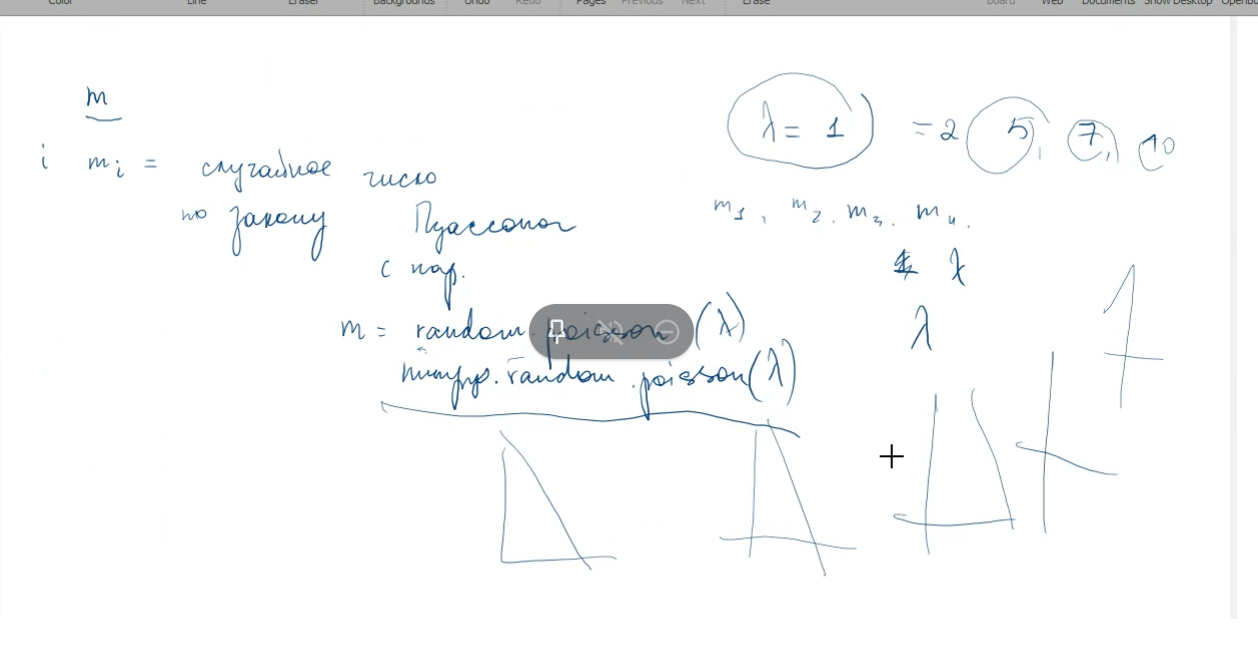 Color Line Eraser Backgrounds Undo Redo Pages Previous Next Erase Board Web Documents Show Desktop
m
i m_i = случайное число
по закону Пуассона
с пар.
m = random.poisson(λ)
numpy.random.poisson(λ)
λ = 1 = 2 5, 7, 10
m₁, m₂, m₃, m₄,
λ
λ